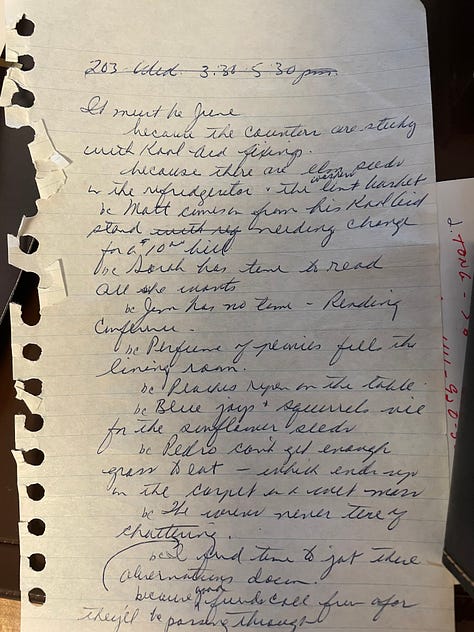 203 Wed. 3.30 5 30 pm.
It must be June
because the counters are sticky
with Kool-Aid fixings.
because there are elm seeds
in the refridgerator + the washer lint basket
bc Matt comes in from his Kool aid
stand with needing change
for a $10 00 bill
bc Sarah has time to read
all she wants
bc Jim has no time - Reading
Conference.
bc Perfume of peonies fill the
living room.
bc Peaches ripen on the table
bc Blue jays + squirrels vie
for the sunflower seeds
bc Pedro can't get enough
grass to eat - which ends up
on the carpet in a wet mess
bc The wrens never tire of
chattering.
bc I find time to jot these
observations down.
because good friends call from afar
they'll be passing through